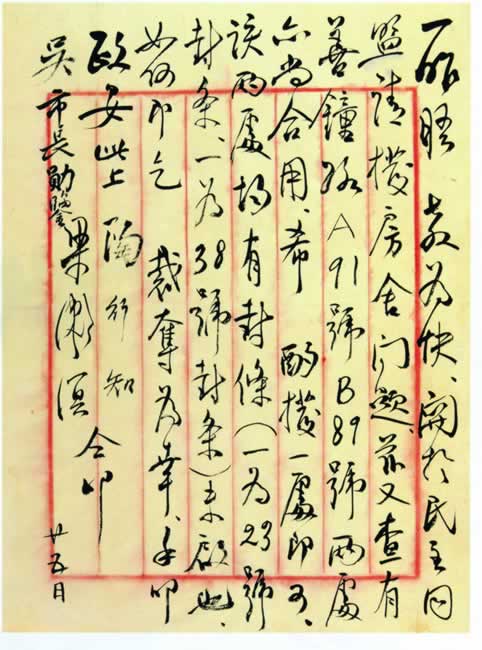 一昨晤 教为快、關於民主同
盟請撥房舍问题、茲又查有
善鐘路A91號B89號兩處
亦尚合用、希 酌撥一處即可、
該兩處均有封條(一为23號
封条、一为38號封条)未啟也、
如何即乞 裁奪为幸、手叩
政安 此上 陶行知
吴市長勛鑒 梁漱溟 仝叩
廿五日